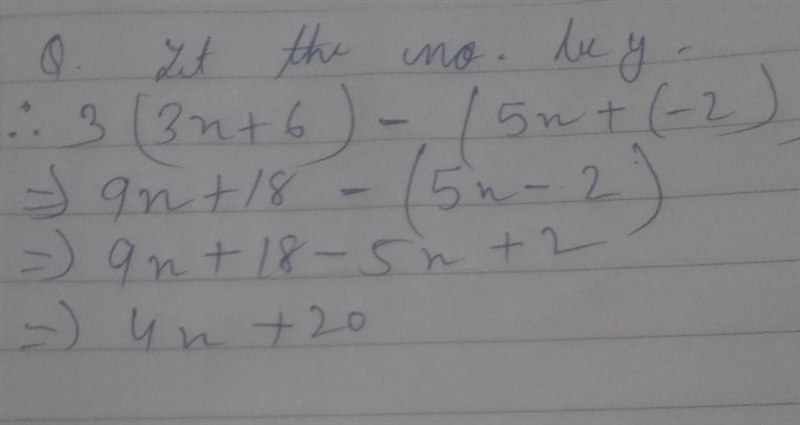 Q. Let the no. be y.
∴ 3(3n+6) - (5n+(-2)
⇒ 9n+18 - (5n-2)
⇒ 9n+18-5n+2
⇒ 4n+20